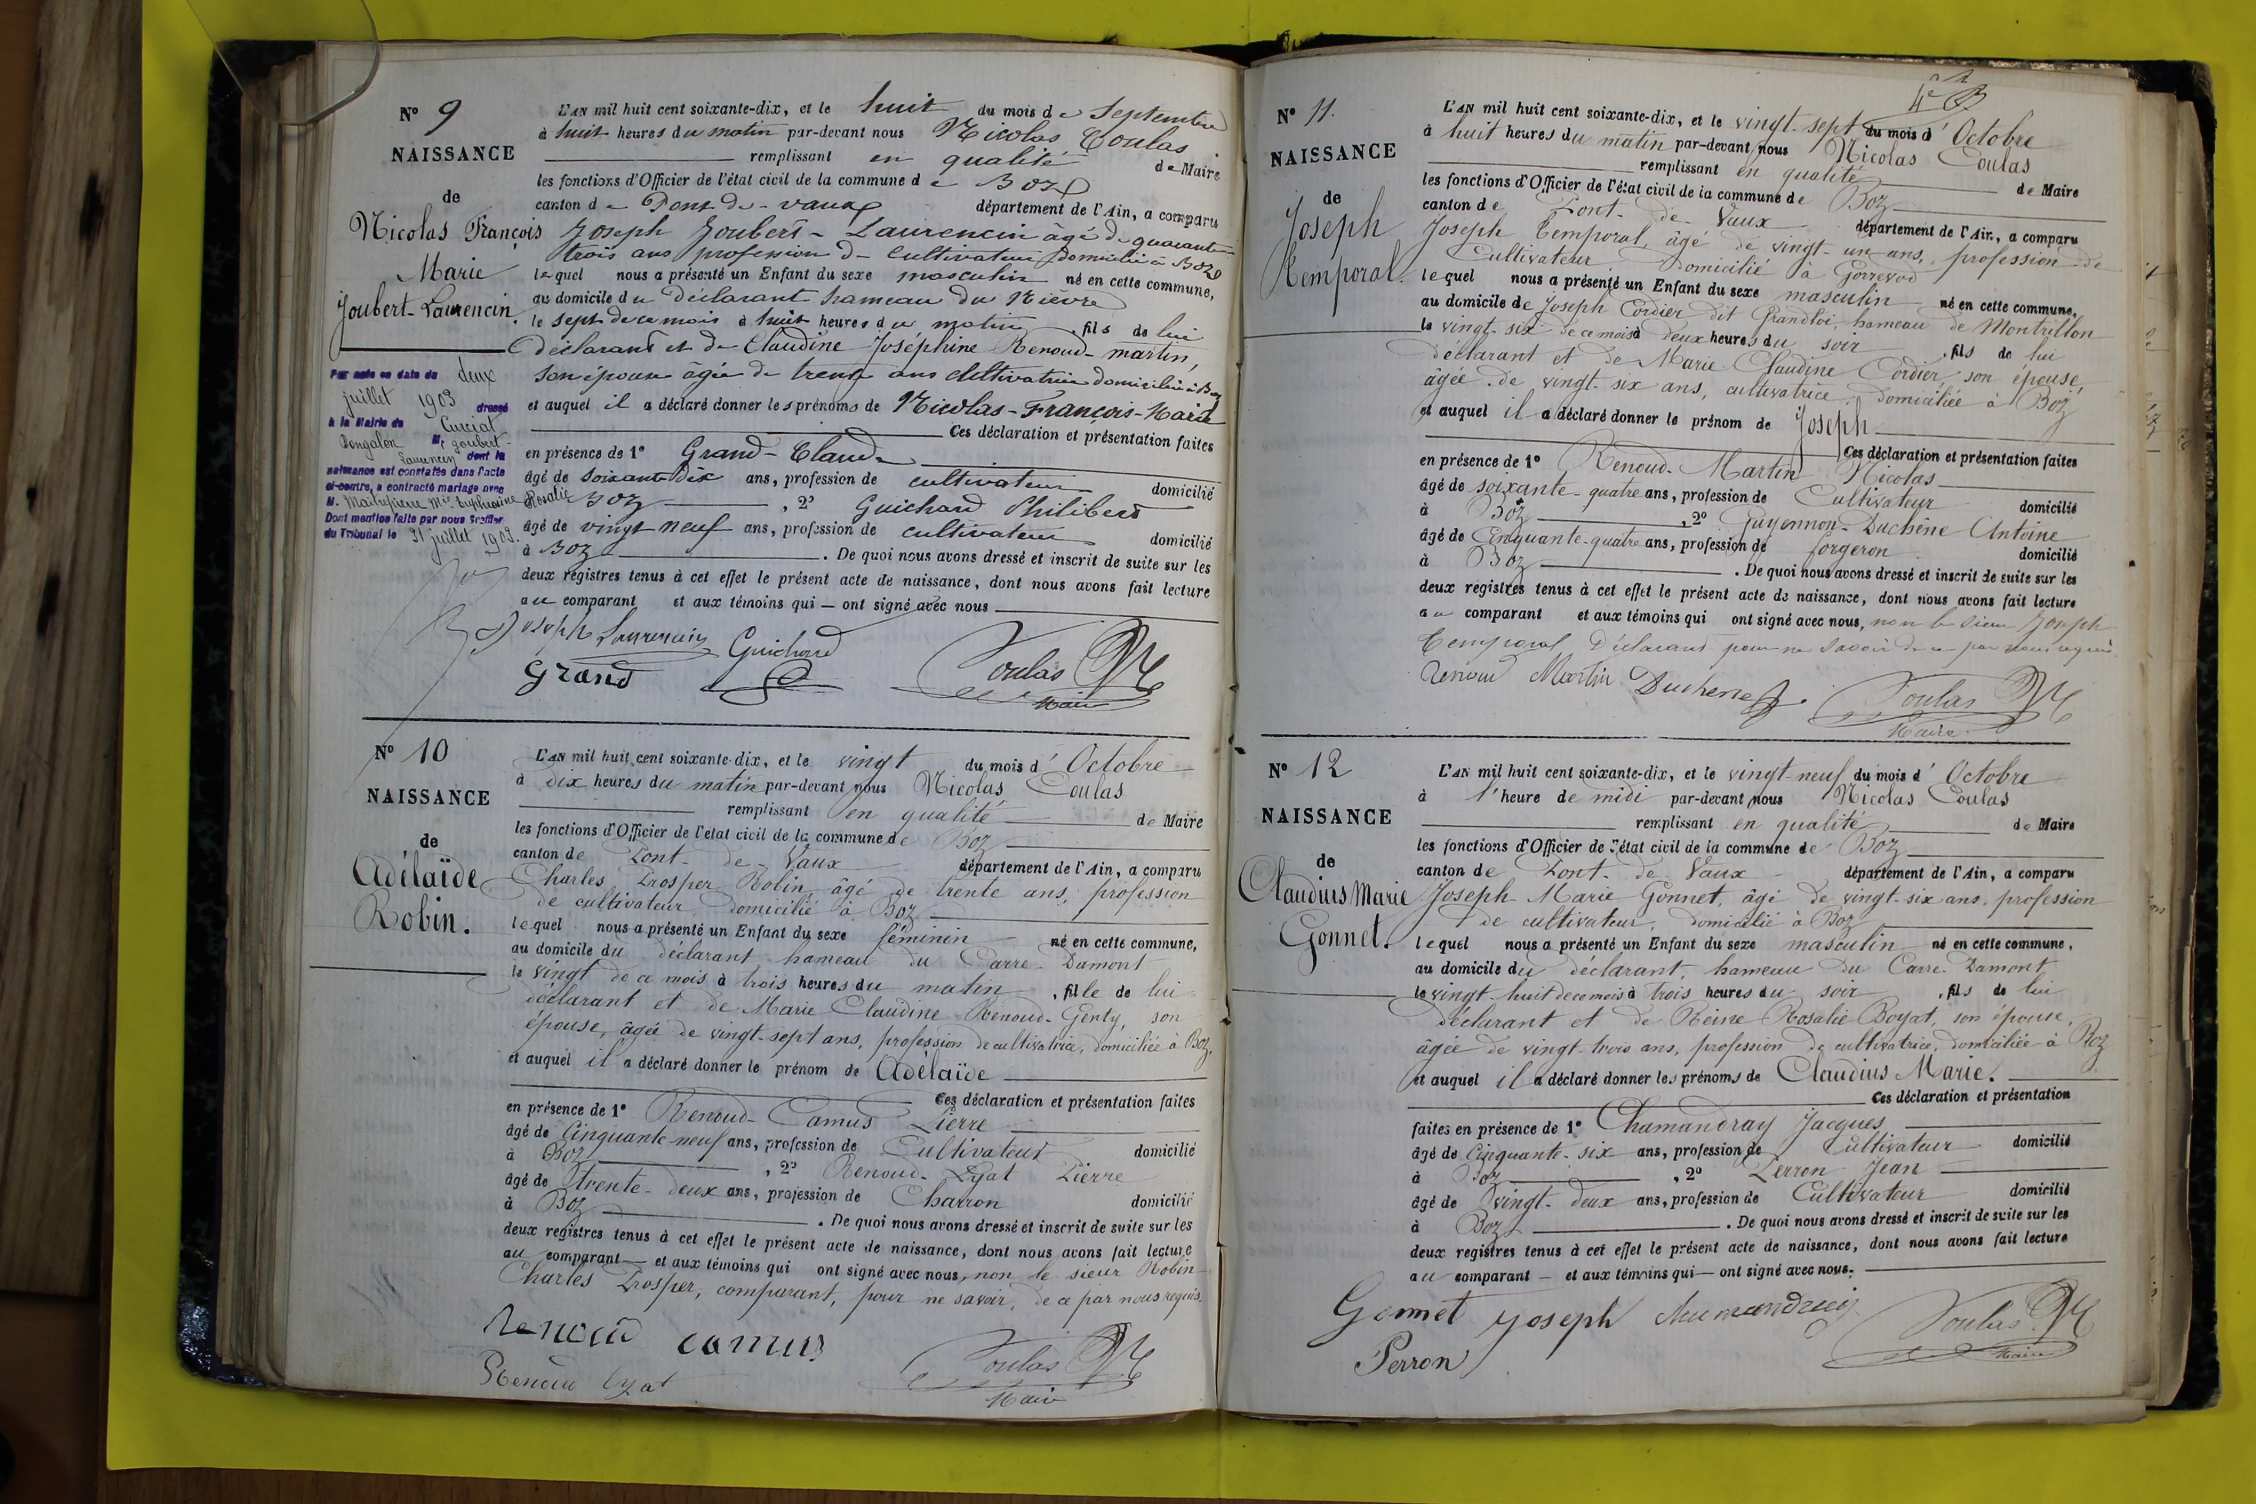 Nº 9
NAISSANCE
de
Nicolas François
Marie
Joubert-Laurencin.
Par acte en date du deux
juillet 1903 dressé
à la Mairie de Curciat
Dongalon Mr Joubert-
Laurencin dont la
naissance est constatée dans l'acte
ci-contre, a contracté mariage avec
Mie Euphrasine
Rosalie
Dont mention faite par nous Greffier
du Tribunal le 31 juillet 1903.
L'AN mil huit cent soixante-dix, et le huit du mois de Septembre
à huit heures du matin par-devant nous Nicolas Coulas
remplissant en qualité de Maire
les fonctions d'Officier de l'état civil de la commune de Boz
canton de Pont-de-vaux département de l'Ain, a comparu
Joseph Joubert-Laurencin âgé de quarante
trois ans profession de cultivateur domicilié à Boz
lequel nous a présenté un Enfant du sexe masculin né en cette commune,
au domicile du déclarant hameau du Nièvre
le sept de ce mois à huit heures du matin, fils de lui
déclarant et de Claudine Joséphine Renoud-martin,
son épouse âgée de trente ans cultivatrice domiciliée à Boz
et auquel il a déclaré donner les prénoms de Nicolas-François-Marie
Ces déclaration et présentation faites
en présence de 1º Grand-Claude
âgé de soixante dix ans, profession de cultivateur domicilié
à Boz, 2º Guichard Philibert
âgé de vingt neuf ans, profession de cultivateur domicilié
à Boz. De quoi nous avons dressé et inscrit de suite sur les
deux registres tenus à cet effet le présent acte de naissance, dont nous avons fait lecture
au comparant et aux témoins qui ont signé avec nous
Joseph Laurencin Guichard
Grand Coulas
Maire
Nº 10
NAISSANCE
de
Adélaïde
Robin.
L'AN mil huit cent soixante-dix, et le vingt du mois d'Octobre
à dix heures du matin par-devant nous Nicolas Coulas
remplissant en qualité de Maire
les fonctions d'Officier de l'état civil de la commune de Boz
canton de Pont-de-Vaux département de l'Ain, a comparu
Charles Prosper Robin, âgé de trente ans, profession
de cultivateur domicilié à Boz
lequel nous a présenté un Enfant du sexe féminin né en cette commune,
au domicile du déclarant hameau du Carre-Damont
le vingt de ce mois à trois heures du matin, fille de lui
déclarant et de Marie Claudine Renoud-Genty, son
épouse, âgée de vingt-sept ans, profession de cultivatrice, domiciliée à Boz,
et auquel il a déclaré donner le prénom de Adélaïde
Ces déclaration et présentation faites
en présence de 1º Renoud-Camus Pierre
âgé de Cinquante-neuf ans, profession de Cultivateur domicilié
à Boz, 2º Renoud-Lyat Pierre
âgé de trente-deux ans, profession de Charron domicilié
à Boz. De quoi nous avons dressé et inscrit de suite sur les
deux registres tenus à cet effet le présent acte de naissance, dont nous avons fait lecture
au comparant et aux témoins qui ont signé avec nous, non le sieur Robin
Charles Prosper, comparant, pour ne savoir, de ce par nous requis.
Renoud camus
Renoud lyat Coulas
Maire
4e
Nº 11.
NAISSANCE
de
Joseph
Temporal.
L'AN mil huit cent soixante-dix, et le vingt-sept du mois d'Octobre
à huit heures du matin par-devant nous Nicolas Coulas
remplissant en qualité de Maire
les fonctions d'Officier de l'état civil de la commune de Boz
canton de Pont-de-Vaux département de l'Ain, a comparu
Joseph Temporal, âgé de vingt-un ans, profession de
Cultivateur domicilié à Gorrevod
lequel nous a présenté un Enfant du sexe masculin né en cette commune,
au domicile de Joseph Cordier dit Grandloi, hameau de Montrillon
le vingt-six de ce mois à deux heures du soir, fils de lui
déclarant et de Marie Claudine Cordier, son épouse,
âgée de vingt-six ans, cultivatrice domiciliée à Boz
et auquel il a déclaré donner le prénom de Joseph
Ces déclaration et présentation faites
en présence de 1º Renoud-Martin Nicolas
âgé de soixante-quatre ans, profession de Cultivateur domicilié
à Boz, 2º Guyennon-Duchêne Antoine
âgé de Cinquante-quatre ans, profession de forgeron domicilié
à Boz. De quoi nous avons dressé et inscrit de suite sur les
deux registres tenus à cet effet le présent acte de naissance, dont nous avons fait lecture
au comparant et aux témoins qui ont signé avec nous, non le sieur Joseph
Temporal Déclarant pour ne savoir de ce par nous requis
Renoud Martin Duchene Coulas
Maire
Nº 12
NAISSANCE
de
Claudius Marie
Gonnet.
L'AN mil huit cent soixante-dix, et le vingt-neuf du mois d'Octobre
à l'heure de midi par-devant nous Nicolas Coulas
remplissant en qualité de Maire
les fonctions d'Officier de l'état civil de la commune de Boz
canton de Pont-de-Vaux département de l'Ain, a comparu
Joseph-Marie Gonnet, âgé de vingt-six ans, profession
de cultivateur, domicilié à Boz
lequel nous a présenté un Enfant du sexe masculin né en cette commune,
au domicile du déclarant, hameau du Carre-Damont
le vingt-huit de ce mois à trois heures du soir, fils de lui
déclarant et de Reine Rosalie Boyat, son épouse,
âgée de vingt-trois ans, profession de cultivatrice, domiciliée à Boz
et auquel il a déclaré donner les prénoms de Claudius Marie.
Ces déclaration et présentation
faites en présence de 1º Chamandray Jacques
âgé de Cinquante-six ans, profession de Cultivateur domicilié
à Boz, 2º Perron Jean
âgé de vingt-deux ans, profession de Cultivateur domicilié
à Boz. De quoi nous avons dressé et inscrit de suite sur les
deux registres tenus à cet effet le présent acte de naissance, dont nous avons fait lecture
au comparant et aux témoins qui ont signé avec nous.
Gonnet Joseph
Perron Coulas
Maire